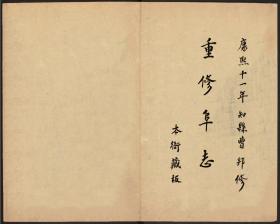 康熙十一年知縣曹邦修
重修阜志
本衙藏板